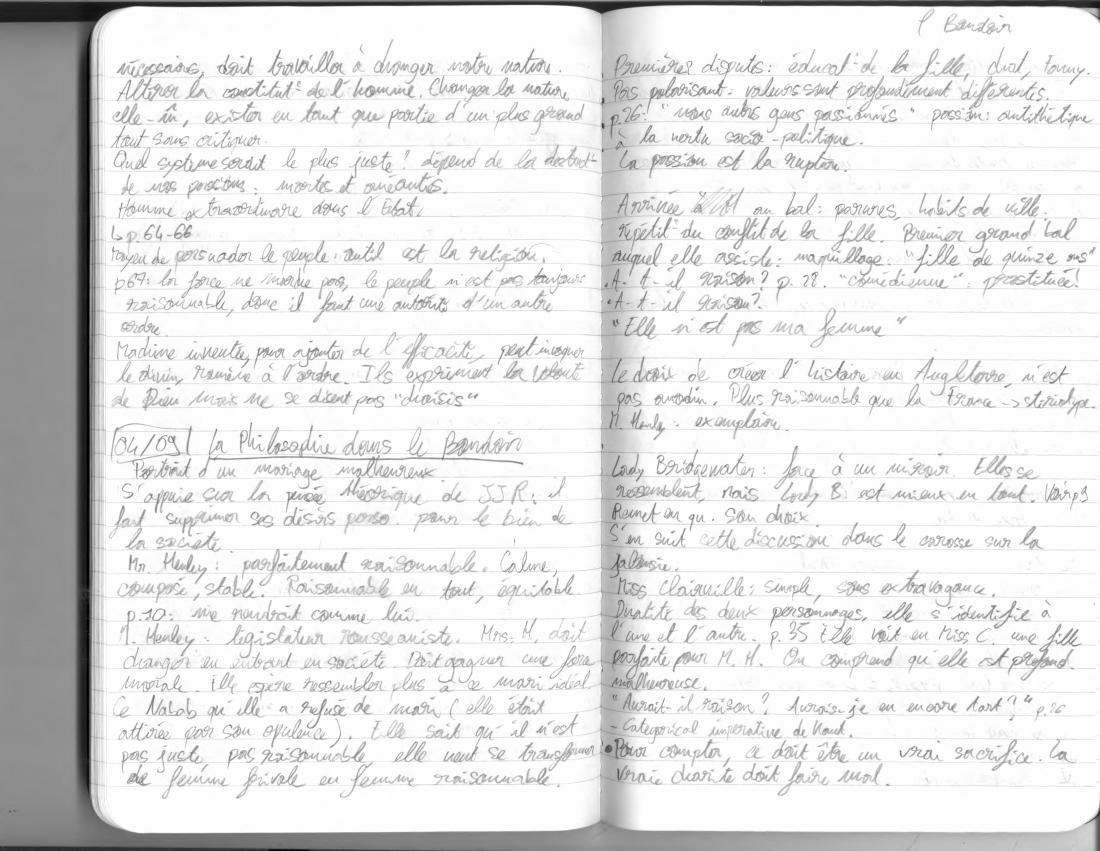 nécessaire, doit travailler à changer notre nature.
Altérer la constitut° de l'homme. Changer la nature
elle-m̂, exister en tant que partie d'un plus grand
tout sans critiquer.
Quel système serait le plus juste? dépend de la destruct°
de nos passions: mortes et anéanties.
Homme extraordinaire dans l'Etat,
↳ p.64-66
Moyen de persuader le peuple: outil est la religion.
p67: la force ne marche pas, le peuple n'est pas toujours
raisonnable, donc il faut une autorité d'un autre
ordre.
Machine inventée, pour ajouter de l'efficacité, peut invoquer
le divin, ramène à l'ordre. Ils expriment la volonté
de Dieu mais ne se disent pas "choisis"
04/09 La Philosophie dans le Boudoir
Portrait d'un mariage malheureux
S'appuie sur la pensée théorique de JJR: il
faut supprimer ses désirs perso. pour le bien de
la société.
Mr. Henley: parfaitement raisonnable. Calme,
composé, stable. Raisonnable en tout, équitable.
p.10: me rendrait comme lui.
M. Henley: législateur rousseauiste. Mrs. H. doit
changer en entrant en société. Doit gagner une force
morale. Elle espère ressembler plus à ce mari idéal.
Ce Nabab qu'elle a refusé de mari (elle était
attirée par son opulence). Elle sait qu'il n'est
pas juste, pas raisonnable elle veut se transformer
de femme frivole en femme raisonnable.
Boudoir
Premières disputes: éducat° de la fille, chat, Fanny.
Pas polarisant: valeurs sont profondément différentes.
p.26: "nous autres gens passionnés" passion: antithétique
à la vertu socio-politique.
La passion est la ruption.
Arrivée au bal: parures, habits de ville.
répétit° du conflit de la fille. Premier grand bal
auquel elle assiste: maquillage. "fille de quinze ans"
A-t-il raison? p. 28. "comédienne": prostituée!
A-t-il raison?
"Elle n'est pas ma femme"
Le choix de créer l'histoire en Angleterre, n'est
pas anodin. Plus raisonnable que la France -> stéréotype.
M. Henley: exemplaire.
Lady Bridgewater: face à un miroir. Elles se
ressemblent, mais Lady B. est mieux en tout. Voir p3
Remet en qu. son choix.
S'en suit cette discussion dans le carosse sur la
jalousie.
Miss Clairville: simple, sans extravagance.
Dualité des deux personnages, elle s'identifie à
l'une et l'autre. p.35 Elle voit en Miss C. une fille
parfaite pour M. H. On comprend qu'elle est profond.
malheureuse.
"Aurait-il raison? Aurais-je eu encore tort?" p.26
- Categorical imperative de Kant.
• Pour compter, ce doit être un vrai sacrifice. La
vraie charité doit faire mal.